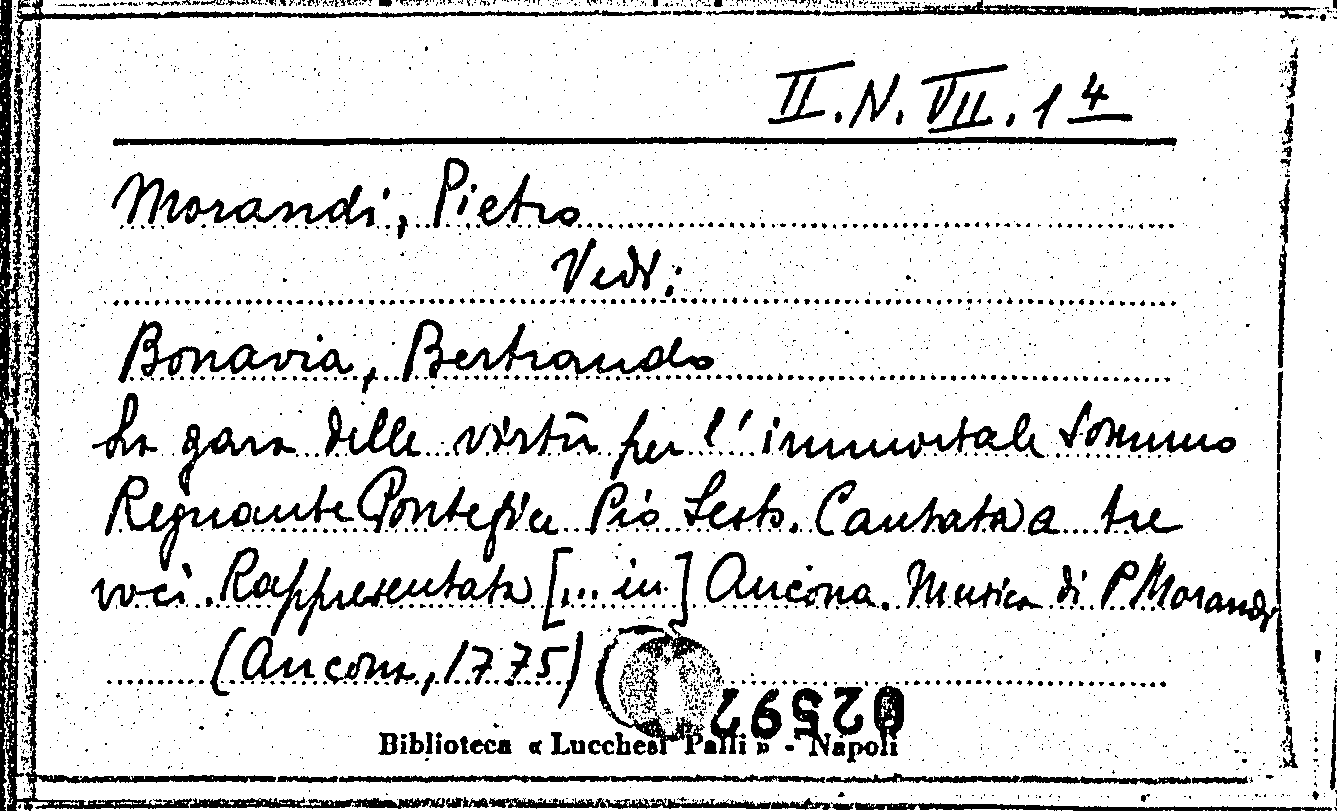 II.N.VII.1⁴
Morandi, Pietro
Vedi:
Bonavia, Bertrando
La gara delle virtù per l'immortale Sommo
Regnante Pontefice Pio Sesto. Cantata a tre
voci. Rappresentata [... in] Ancona. Musica di P Morandi
(Ancona, 1775)
02592
Biblioteca « Lucchesi Palli » - Napoli